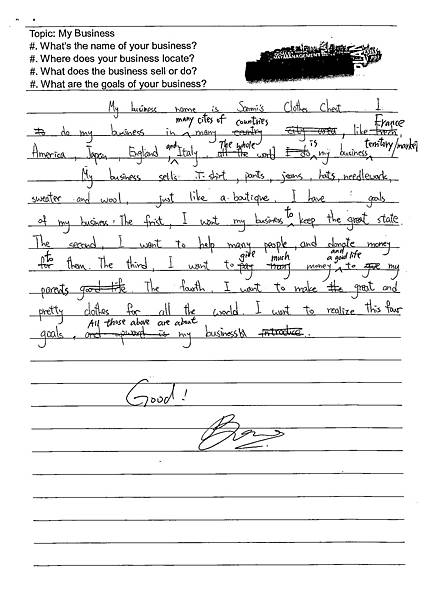 Topic: My Business
#. What's the name of your business?
#. Where does your business locate?
#. What does the business sell or do?
#. What are the goals of your business?
My business name is Sammi's Clothes Chest. I
many cites of countries France
do my business in many country city area, like
and The whole is territory/market
America, Japan England, Italy all the world I do my business
My business sells T-shirt, pants, jeans, hats, needlework,
sweater and wool, just like a boutique. I have goals
to
of my business: The frist, I want my business keep the great state.
The second, I want to help many people, and donate money
to give much and a good life
for them. The third, I want to pay many money to give my
parents good life. The fourth, I want to make the great and
pretty clothes for all the world. I want to realize this four
All those above are about
goals, and upward is my business introduce.
Good!